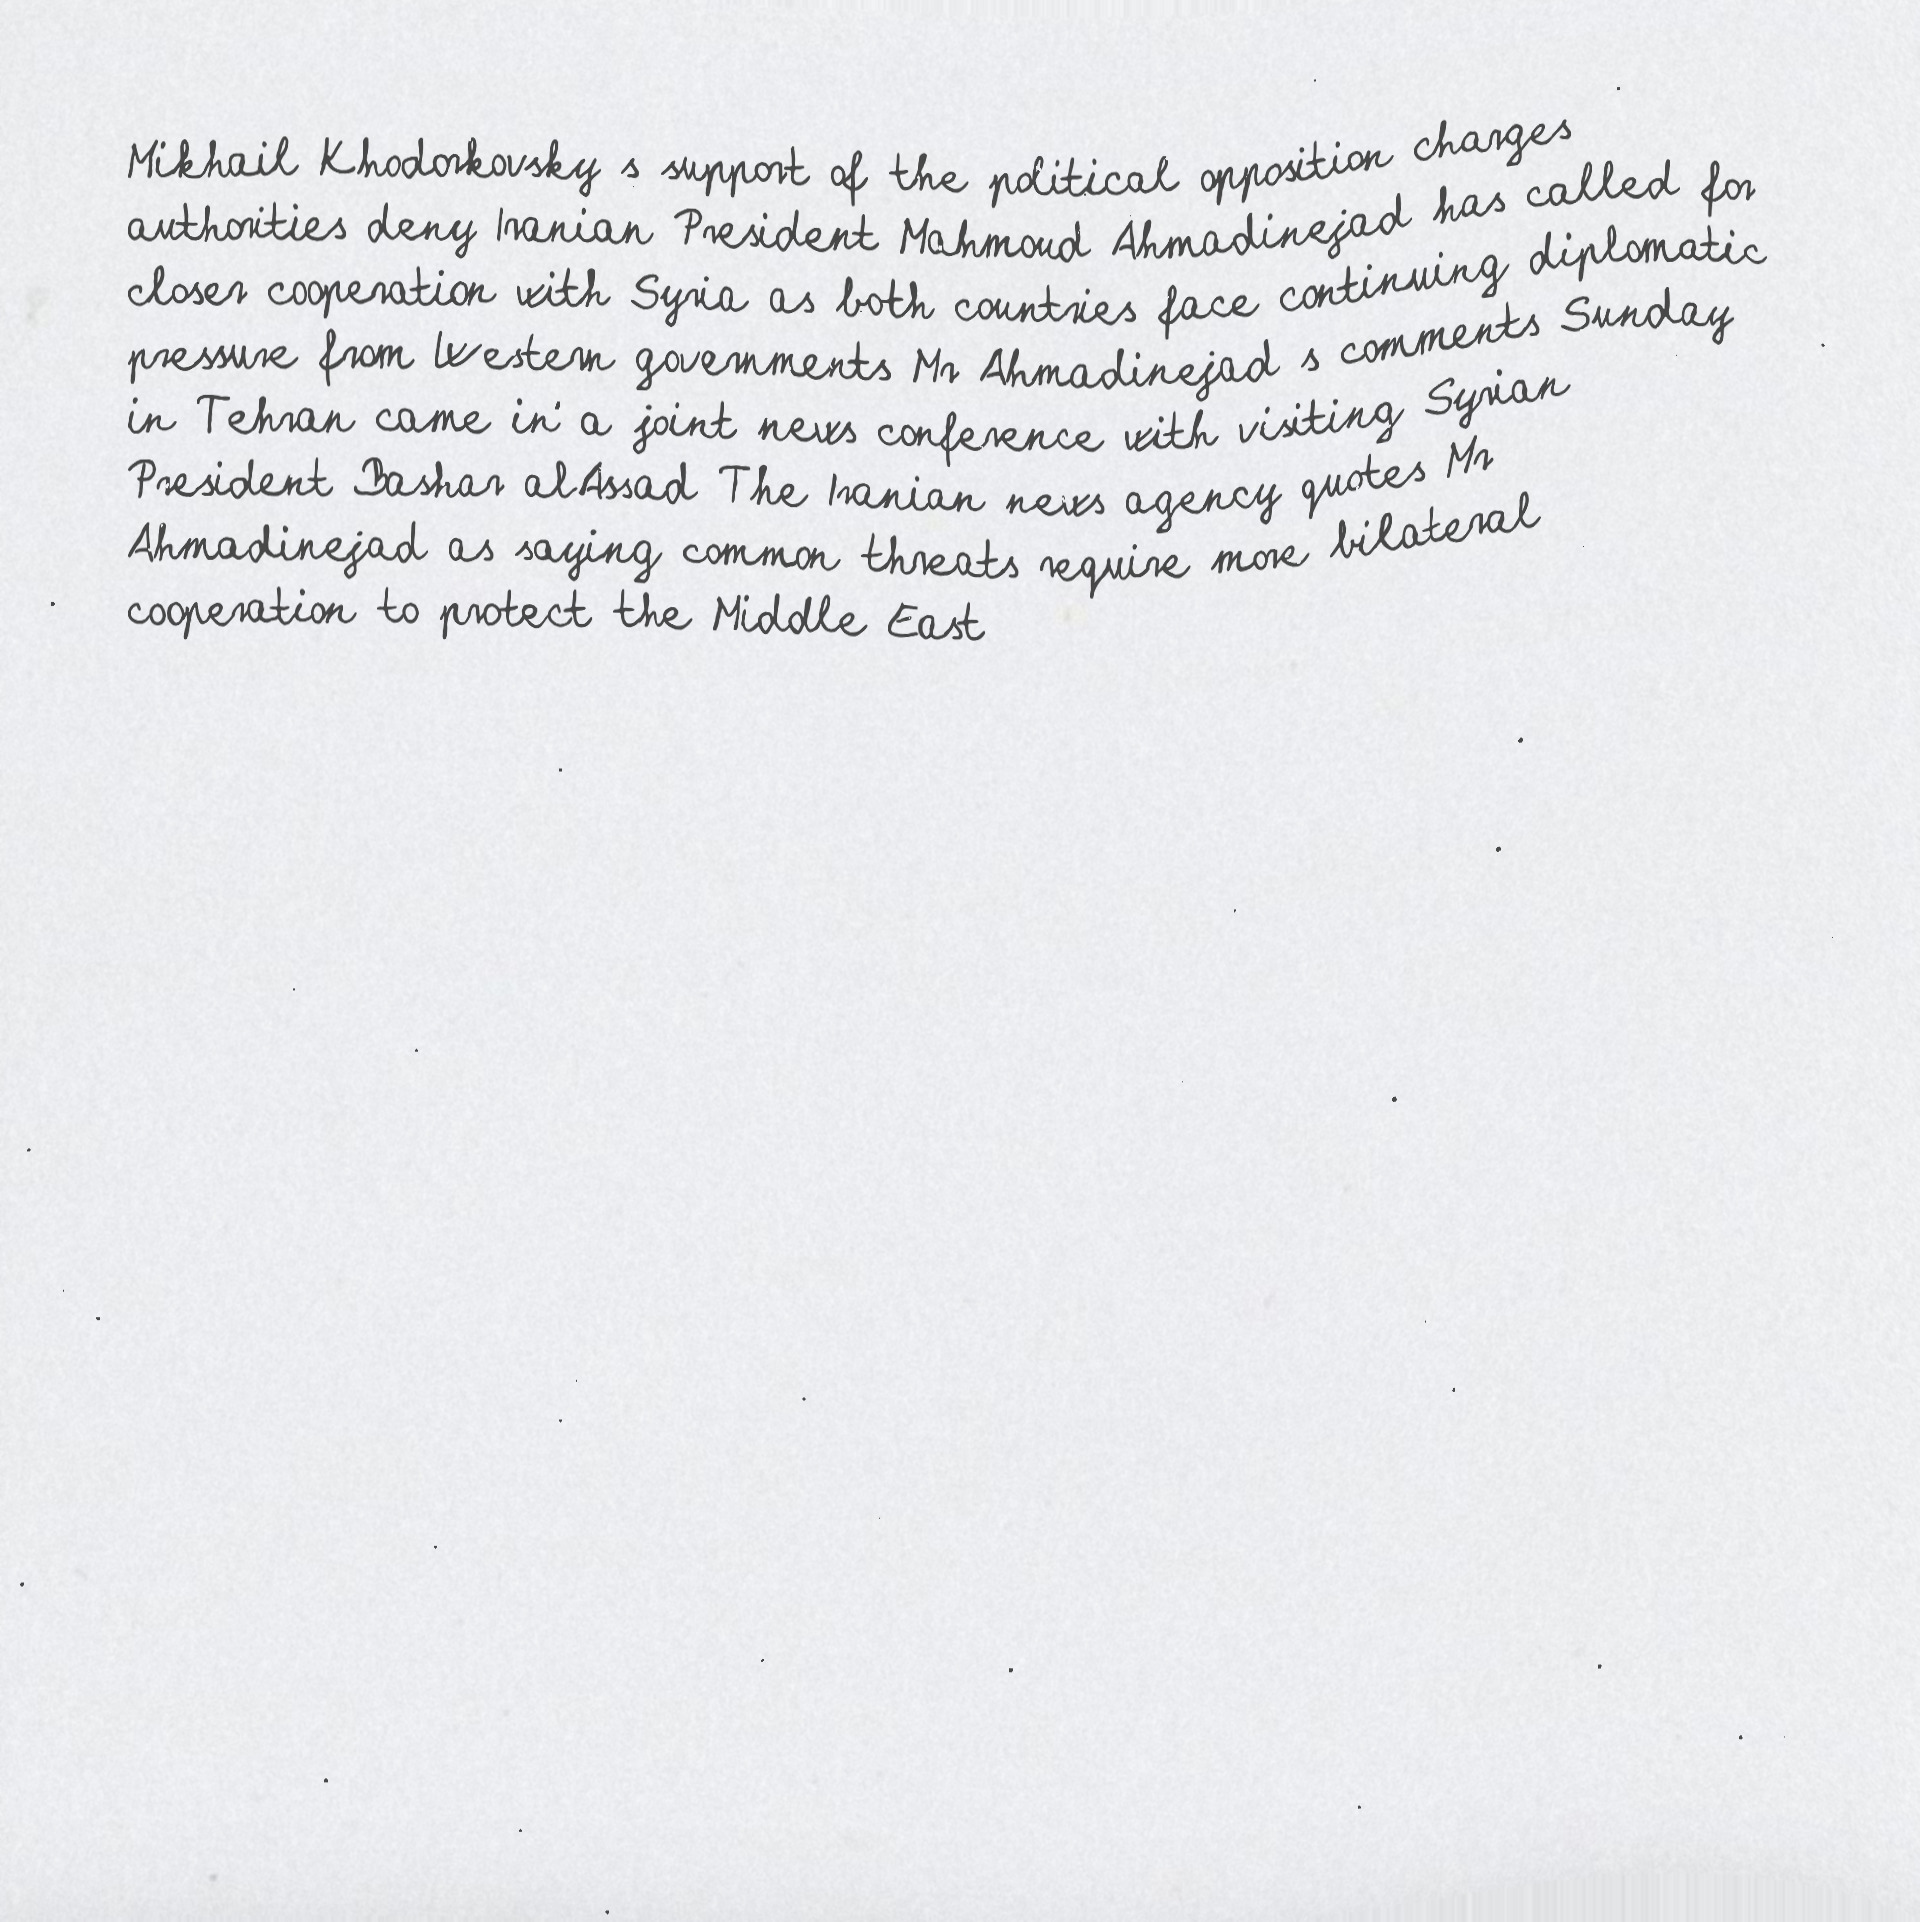 Mikhail Khodorkovsky s support of the political opposition charges
authorities deny Iranian President Mahmoud Ahmadinejad has called for
closer cooperation with Syria as both countries face continuing diplomatic
pressure from Western governments Mr Ahmadinejad s comments Sunday
in Tehran came in a joint news conference with visiting Syrian
President Bashar alAssad The Iranian news agency quotes Mr
Ahmadinejad as saying common threats require more bilateral
cooperation to protect the Middle East